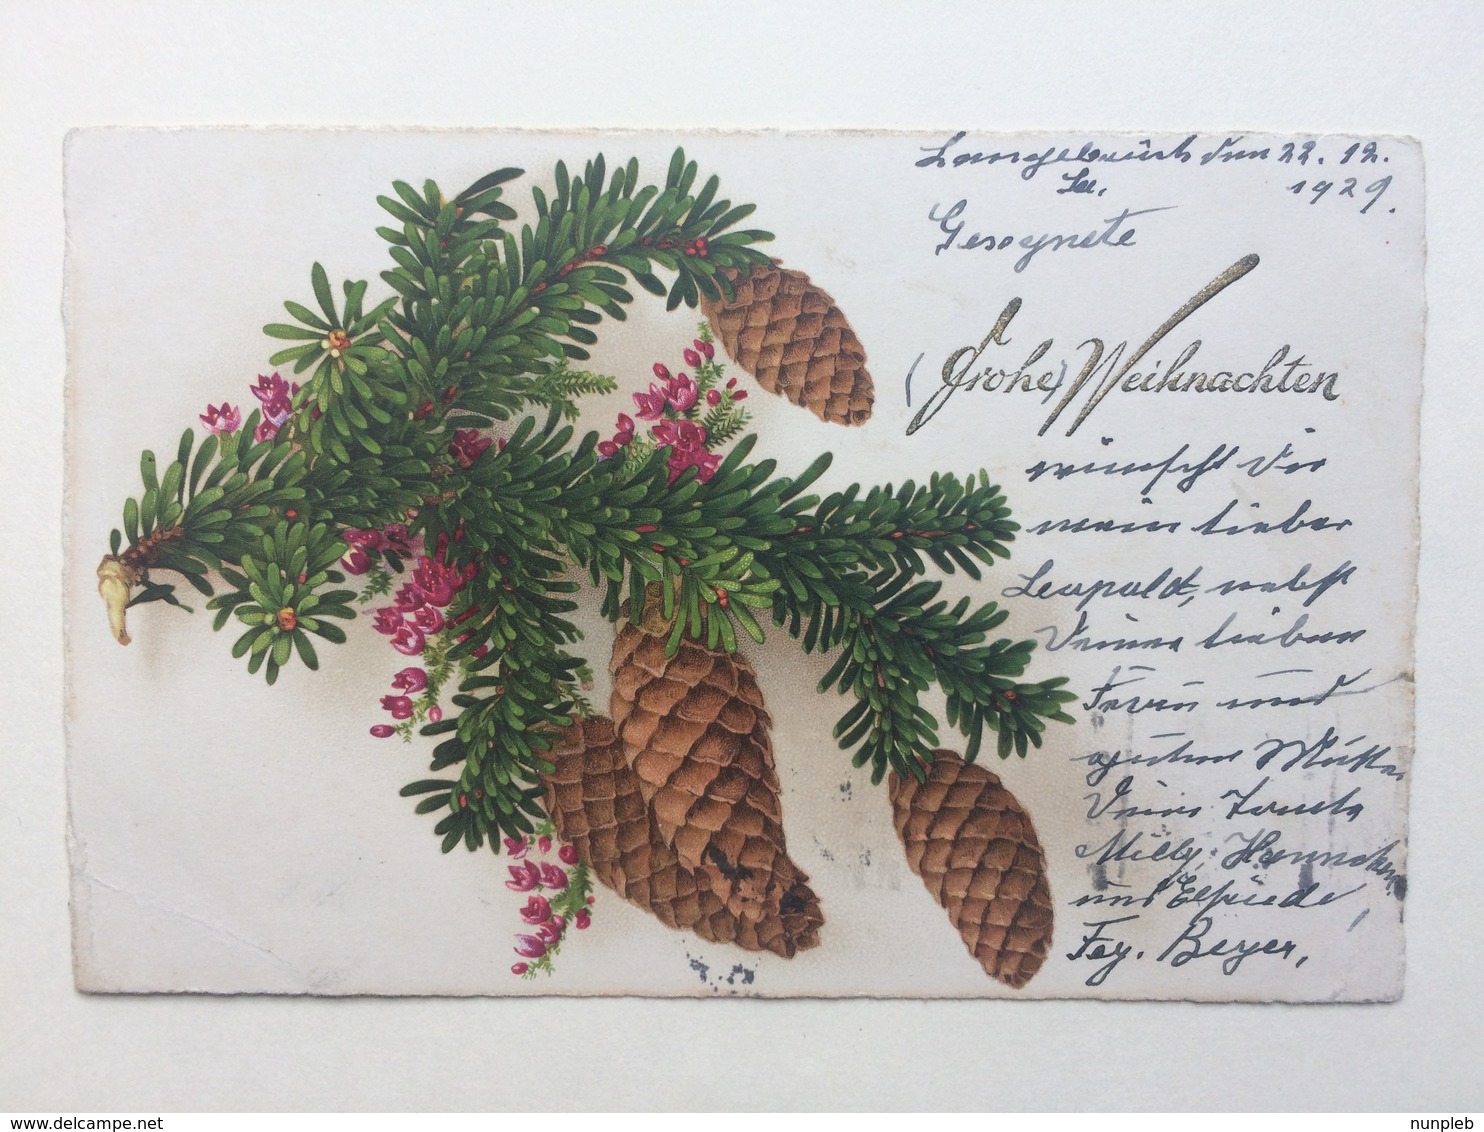 Langebrück den 22. 12.
Sa. 1929.
Gesegnete
(Frohe) Weihnachten
wünscht Dir
mein lieber
Leopold, nebst
Deiner lieben
Frau und
guten Mutter
Deine Tante
Milly. Hannchen
und Elfriede,
Fey. Beyer,
nunpleb